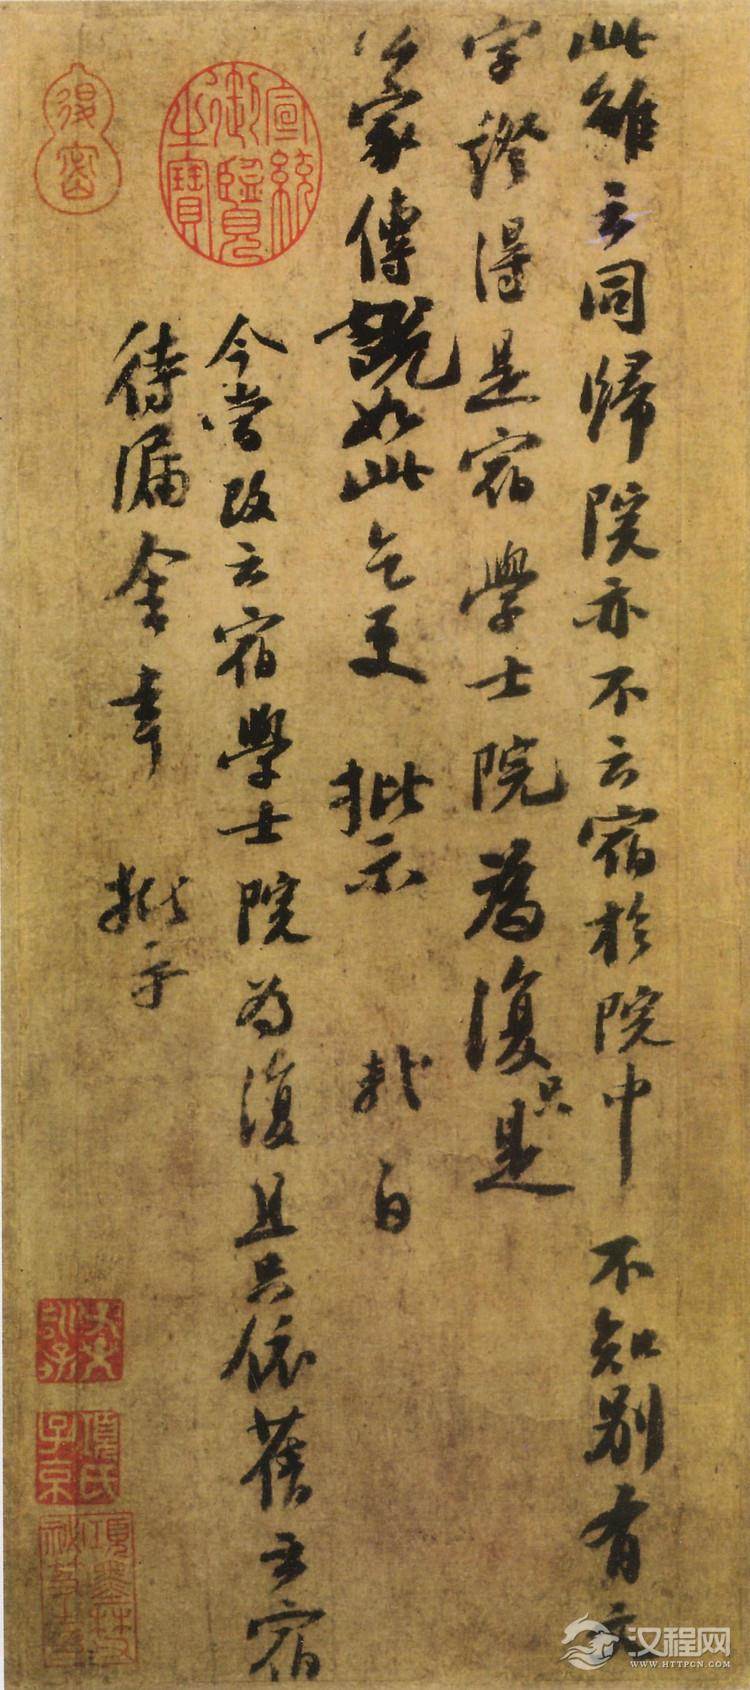 此雖云同歸院亦不云宿於院中 不知別有文
字證得是宿學士院為復只是
家傳說如此乞更 批示 軾白
今嘗改云宿學士院為復且只依舊云宿
待漏舍 幸 批示
宣統
御覽
之寶
項氏
子京
汉程网
WWW.HTTPCN.COM